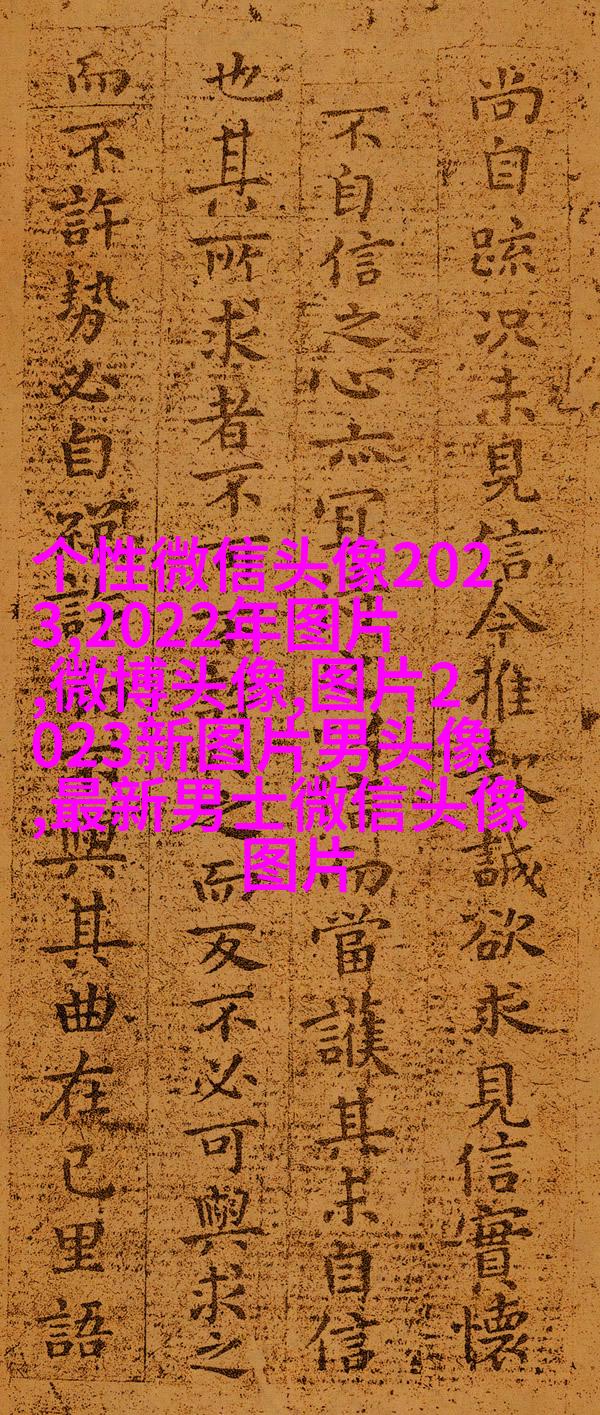 尚自疏況未見信今推誠欲求見信實懷
不自信之心亦宜當護其未自信
也其所求者不之而反不必可與求之
而不許勢必自許與其曲在己里語
个性微信头像202
3,2022年图片
,微博头像,图片2
023新图片男头像
,最新男士微信头像
图片